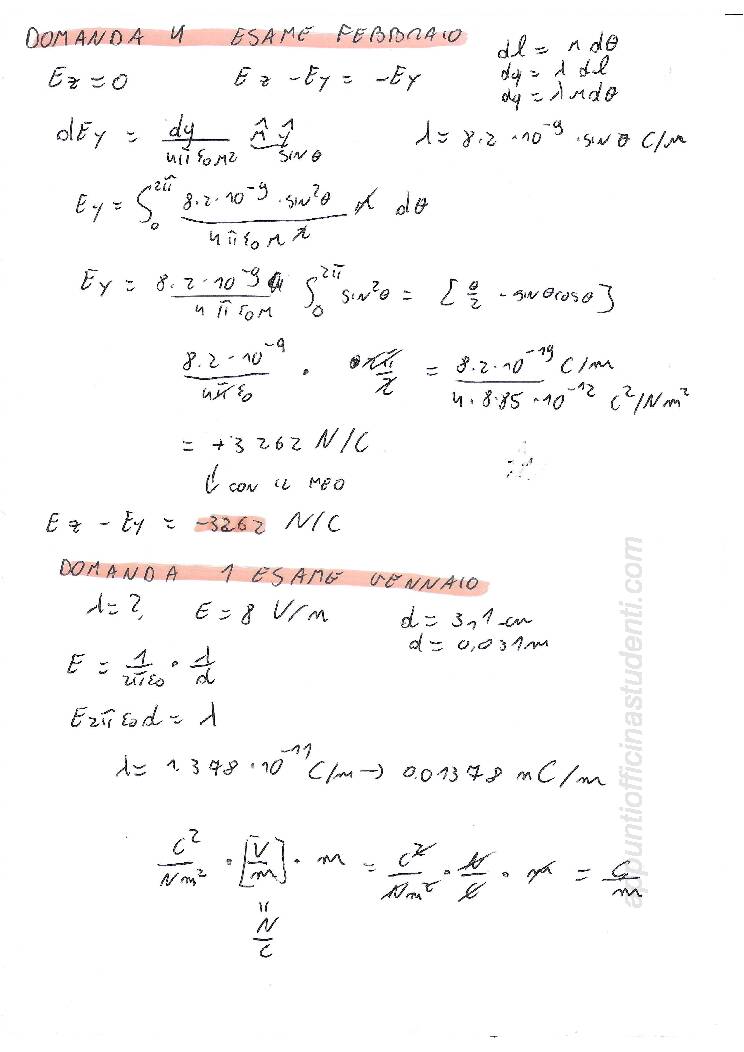 DOMANDA 4 ESAME FEBBRAIO
dl = r dθ
Ez = 0 Ez - Ey = -Ey
dq = λ dl
dq = λ r dθ
dEy = dq / 4π ε0 r2 r̂ ŷ sin θ λ = 8.2 · 10^-9 · sin θ C/m
Ey = ∫_0^2π 8.2 · 10^-9 · sin^2θ / 4π ε0 r 2 r dθ
Ey = 8.2 · 10^-9 / 4 π ε0 r ∫_0^2π sin^2θ = [θ/2 - sin θ cos θ]
8.2 - 10^-9 / 4π ε0 · 2π/2 = 8.2 · 10^-19 C/m / 4 · 8.85 · 10^-12 C^2/Nm^2
= + 3262 N/C
↳ CON IL MEO
Ez - Ey = -3262 N/C
DOMANDA 1 ESAME GENNAIO
λ = ?, E = 8 V/m d = 3,1 cm
d = 0,031 m
E = 1/2π ε0 · λ/d
E 2π ε0 d = λ
λ = 1.378 · 10^-11 C/m → 0.01378 nC/m
C^2/Nm^2 · [V/m] · m = C^2/Nm^2 · N/C · m = C/m
=
N/C
appuntiofficinastudenti.com